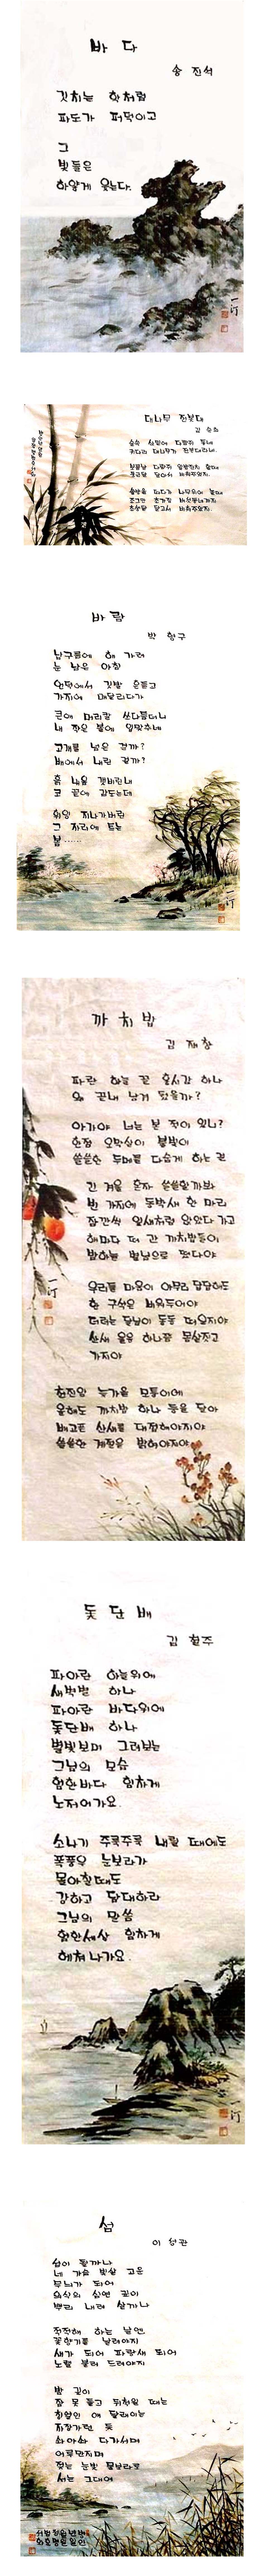 바다
송 진석
깃치는 학처럼
파도가 퍼덕이고
그
빛들은
하얗게 웃는다.
一汀
대나무 전봇대
김 순희
바람
박 형구
남구름에 해 가려
눈 낮은 아침
언덕에서 깃발 흔들고
가지에 매달리다가
큰애 머리칼 쓰다듬더니
내 작은 볼에 입맞추네
고개를 넘은 걸까?
배에서 내린 걸까?
흙 내음 갯비린내
코 끝에 감도는데
휘잉 지나가버린
그 자리에 트는
봄……
一汀
까치밥
김 재창
파란 하늘 끝 술시감 하나
왜 끈내 남겨 뒀을까?
아가야 너는 본 적이 있니?
쓸쓸한 두메를 다습게 하는 걸
긴 겨울 혼자 쓸쓸할까봐
빈 가지에 동박새 한 마리
잠깐씩 잎새처럼 앉았다 가고
해마다 떠 간 까치밥들이
밤하늘 별님으로 떴다야
우리들 마음이 아무리 답답해도
한 구석은 비워두어야
더러는 달님이 동동 떠오지야
산새 울음 하나쯤 묻살짓고
가지야
올해도 까치밥 하나 등을 달아
배고픈 산새를 대접해야지야
쓸쓸한 계절을 밝혀야지야
一汀
돛단배
김 철주
파아란 하늘위에
새벽별 하나
파아란 바다위에
돛단배 하나
별빛보며 그려보는
그님의 모습
험한바다 힘차게
노저어가요.
소나기 주룩주룩 내릴 때에도
폭풍우 눈보라가
몰아칠때도
강하고 담대하라
그님의 말씀
험한세상 힘차게
헤쳐나가요.
一汀
섬
이 성관
섬이 될까나
네 가슴 빛살 고운
무늬가 되어
의식의 심연 깊이
뿌리 내려 살까나
적적해 하는 날엔
꽃향기를 날려야지
새가 되어 파랑새 되어
노랠 불러 드려야지
밤 깊이
잠 못 들고 뒤척일 때는
칭얼인 애 달래이는
자장가련 듯
솨아솨 다가서며
어루만지며
젖는 눈빛 물보라로
서는 그대여